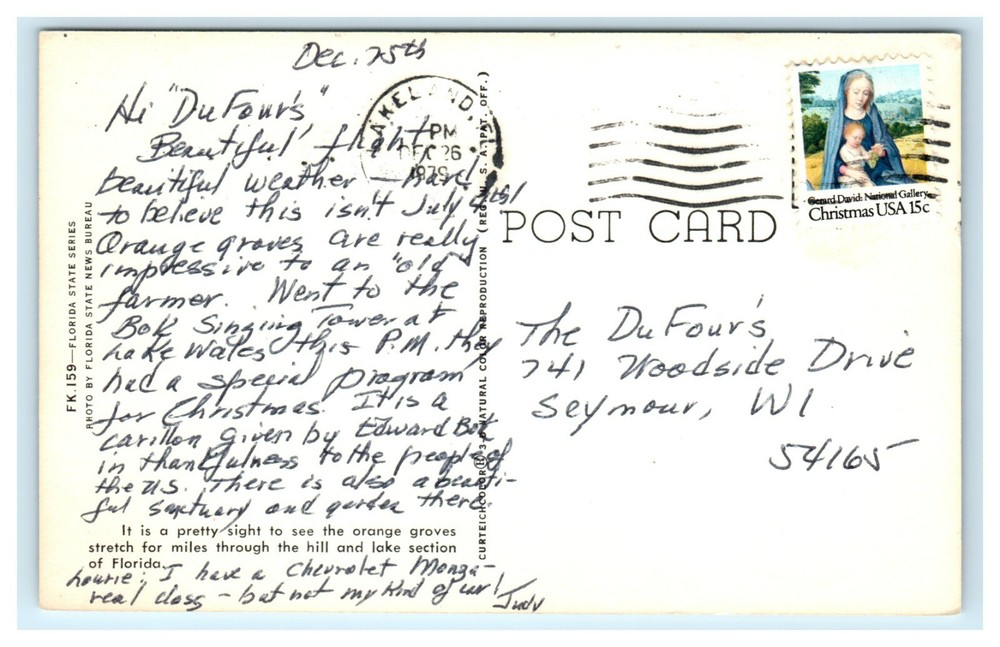 Dec. 25th
Hi "DuFour's"
Beautiful flight
beautiful weather - hard
to believe this isn't July 4th!
Orange groves are really
impressive to an "old"
farmer. Went to the
Bok Singing Tower at
Lake Wales this P.M. they
had a special program
for Christmas. It is a
carillon given by Edward Bok
in thankfulness to the people of
the U.S. There is also a beauti-
ful sanctuary and garden there.
It is a pretty sight to see the orange groves
stretch for miles through the hill and lake section
of Florida.
I have a Chevrolet Monza -
real class - but not my kind of car!
Judy
FK.159—FLORIDA STATE SERIES
PHOTO BY FLORIDA STATE NEWS BUREAU
CURTEICHCOLOR® 3-D NATURAL COLOR REPRODUCTION (REG. U. S. A. PAT. OFF.)
LAKELAND,
PM
DEC 26
1979
POST CARD
Gerard David: National Gallery
Christmas USA 15c
The DuFour's
741 Woodside Drive
Seymour, WI
54165